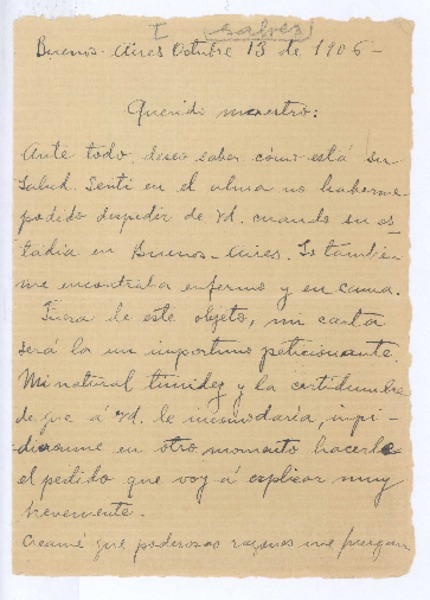 I (Galvez)
Buenos Aires Octubre 13 de 1906-
Querido maestro:
Ante todo, deseo saber cómo está su
salud. Sentí en el alma no haberme
podido despedir de Vd. cuando su es
tadia en Buenos-Aires. Yo tambien
me encontraba enfermo y en cama.
Fuera de este objeto, mi carta
será la un importuno peticionante.
Mi natural timidez y la certidumbre
de que á Vd. le incomodaría, impi-
dieronme en otro momento hacerle
el pedido que voy á explicar muy
brevemente.
Creamé que poderosas razones me